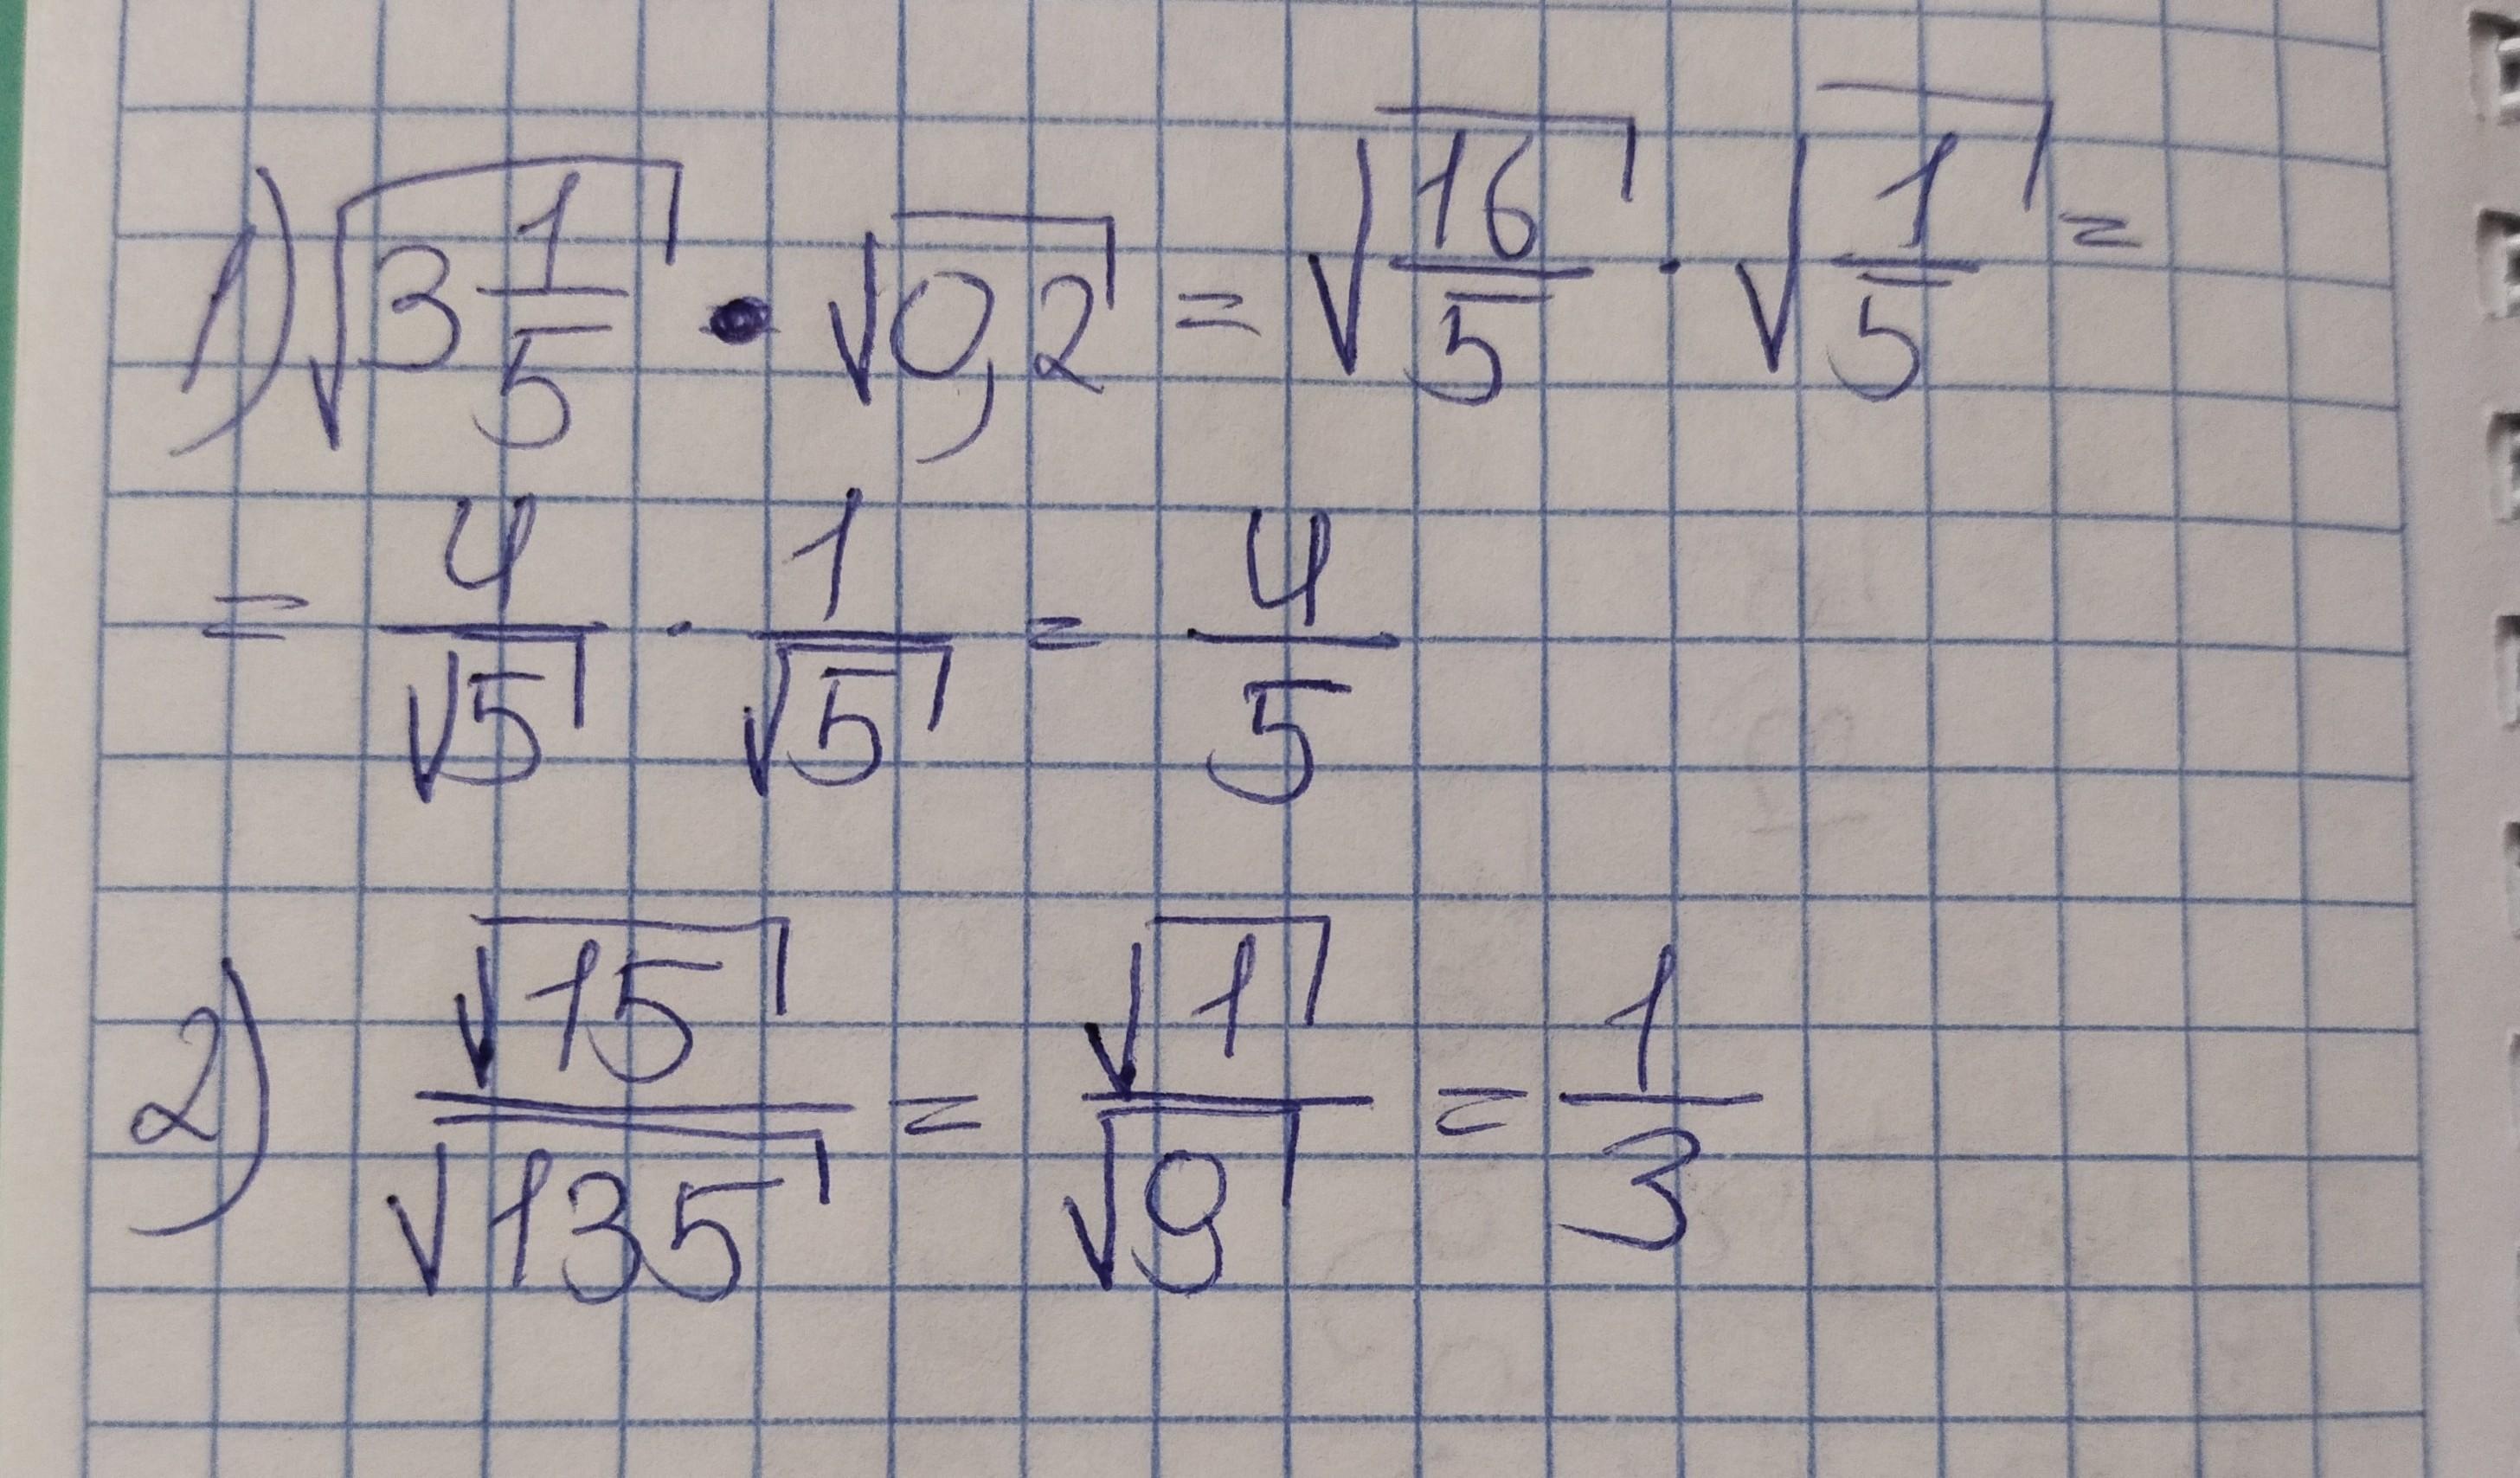 1) √(3 1/5) • √0,2 = √(16/5) · √(1/5) =
= 4/√5 · 1/√5 = 4/5
2) √15/√135 = √1/√9 = 1/3